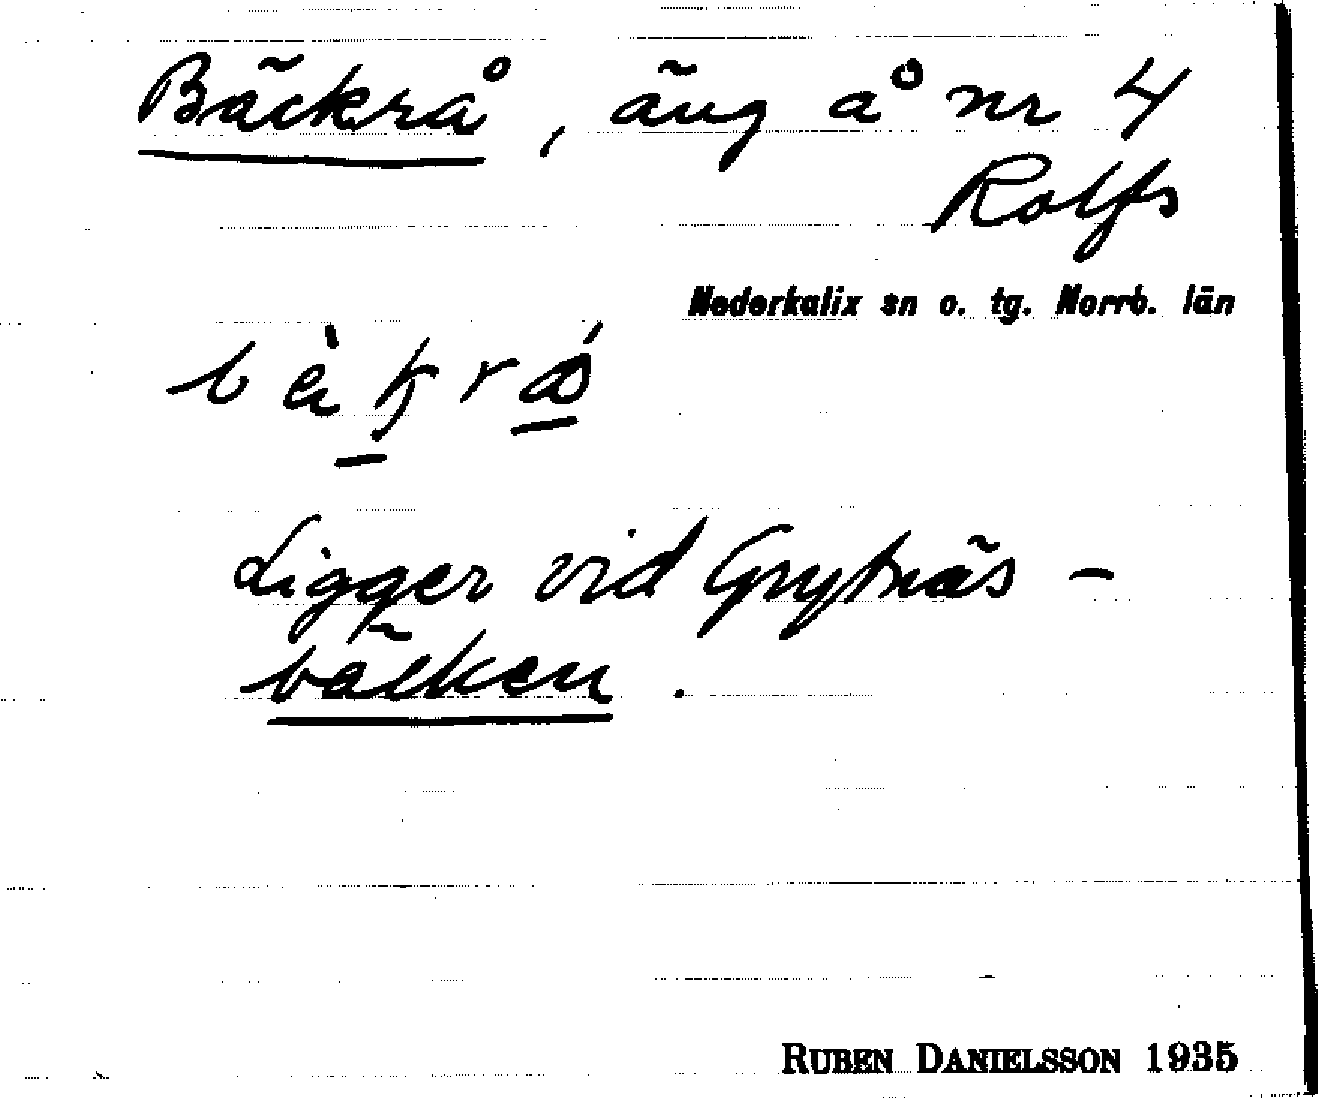 Bäckrå, äng å nr 4
Rolfs
Nederkalix sn o. tg. Norrb. län
Ligger vid Grytnäs-
bäcken.
RUBEN DANIELSSON 1935